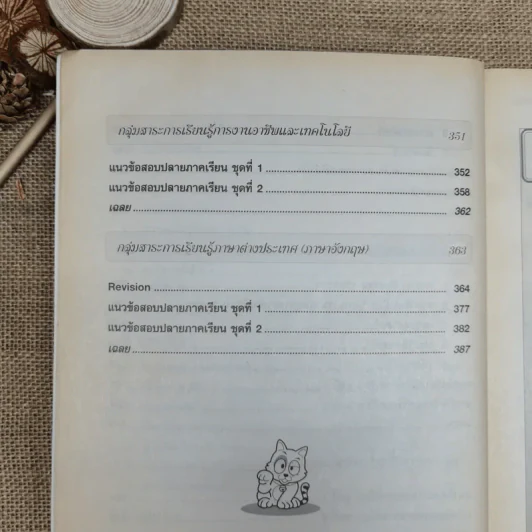 กลุ่มสาระการเรียนรู้การงานอาชีพและเทคโนโลยี 351
แนวข้อสอบปลายภาคเรียน ชุดที่ 1 ........................................ 352
แนวข้อสอบปลายภาคเรียน ชุดที่ 2 ........................................ 358
เฉลย ........................................ 362
กลุ่มสาระการเรียนรู้ภาษาต่างประเทศ (ภาษาอังกฤษ) 363
Revision ........................................ 364
แนวข้อสอบปลายภาคเรียน ชุดที่ 1 ........................................ 377
แนวข้อสอบปลายภาคเรียน ชุดที่ 2 ........................................ 382
เฉลย ........................................ 387